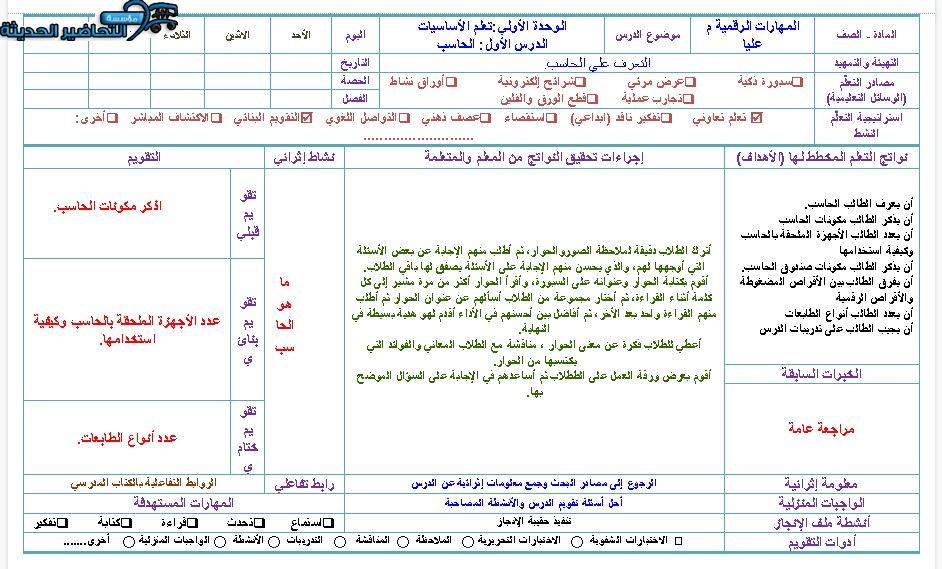 مؤسسة
التحاضير الحديثة
المادة - الصف
المهارات الرقمية م عليا
موضوع الدرس
الوحدة الأولي:تعلم الأساسيات
الدرس الأول: الحاسب
اليوم
الأحد
الاثنين
الثلاثاء
التهيئة والتمهيد
التعرف علي الحاسب.
التاريخ
مصادر التعلم
(الوسائل التعليمية)
سبورة ذكية
عرض مرئي
شرائح إلكترونية
أوراق نشاط
الحصة
تجارب عملية
قطع الورق والفلين
الفصل
استراتيجية التعلم النشط
تعلم تعاوني
تفكير ناقد (ابداعي)
استقصاء
عصف ذهني
التواصل اللغوي
التقويم البنائي
الاكتشاف المباشر
أخرى:
نواتج التعلم المخطط لها (الأهداف)
إجراءات تحقيق النواتج من المعلم والمتعلمة
نشاط إثرائي
التقويم
أن يعرف الطالب الحاسب.
أن يذكر الطالب مكونات الحاسب
أن يعدد الطالب الأجهزة الملحقة بالحاسب
وكيفية استخدامها
أن يذكر الطالب مكونات صندوق الحاسب.
أن يفرق الطالب بين الأقراص المضغوطة
والأقراص الرقمية
أن يعدد الطالب أنواع الطابعات
أن يجيب الطالب على تدريبات الدرس
الخبرات السابقة
مراجعة عامة
أترك الطلاب دقيقة لملاحظة الصور والحوار، ثم أطلب منهم الإجابة عن بعض الأسئلة
التي أوجهها لهم، والذي يحسن منهم الإجابة على الأسئلة يصفق لها باقي الطلاب.
أقوم بكتابة الحوار وعنوانه على السبورة، وأقرأ الحوار أكثر من مرة مشير إلى كل
كلمة أثناء القراءة، ثم أختار مجموعة من الطلاب أسألهم عن عنوان الحوار ثم أطلب
منهم القراءة واحد بعد الأخر، ثم أفاضل بين أحسنهم في الأداء أقدم لهو هدية بسيطة في
النهاية.
أعطي للطلاب فكرة عن معنى الحوار ، مناقشة مع الطلاب المعاني والفوائد التي
يكتسبها من الحوار.
أقوم بعرض ورقة العمل على الطللاب ثم أساعدهم في الإجابة على السؤال الموضح
بها.
ما
هو
الحا
سب
تقو
يم
قبلي
اذكر مكونات الحاسب.
تقو
يم
بنائ
ي
عدد الأجهزة الملحقة بالحاسب وكيفية
استخدامها.
تقو
يم
ختام
ي
عدد أنواع الطابعات.
معلومة إثرائية
الرجوع إلى مصادر البحث وجمع معلومات إثرائية عن الدرس
رابط تفاعلي
الروابط التفاعلية بالكتاب المدرسي
الواجبات المنزلية
أحل أسئلة تقويم الدرس والأنشطة المصاحبة
المهارات المستهدفة
أنشطة ملف الإنجاز
تنفيذ حقيبة الإنجاز
استماع
تحدث
قراءة
كتابة
تفكير
أدوات التقويم
الاختبارات الشفوية
الاختبارات التحريرية
الملاحظة
المناقشة
التدريبات
الأنشطة
الواجبات المنزلية
أخرى.......